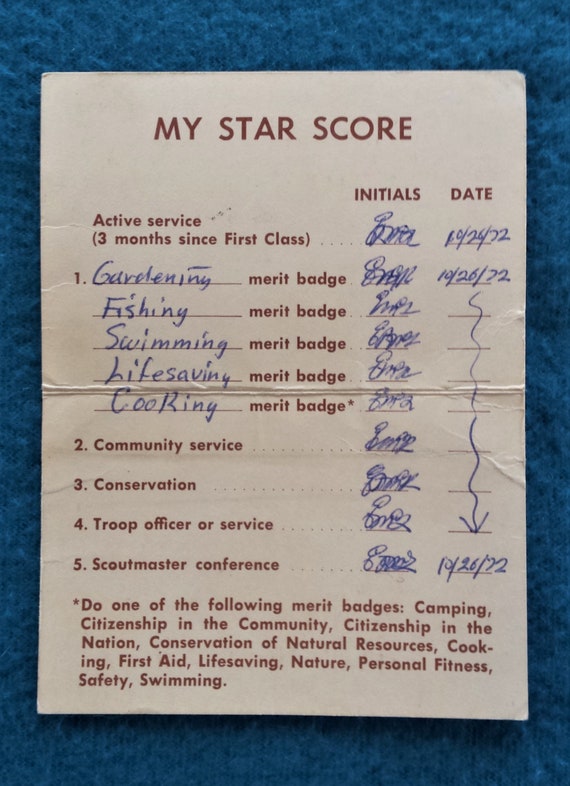 MY STAR SCORE
INITIALS DATE
Active service
(3 months since First Class) .... 10/26/72
1. Gardening merit badge 10/26/72
Fishing merit badge
Swimming merit badge
Lifesaving merit badge
Cooking merit badge*
2. Community service
3. Conservation
4. Troop officer or service
5. Scoutmaster conference 10/26/72
*Do one of the following merit badges: Camping,
Citizenship in the Community, Citizenship in the
Nation, Conservation of Natural Resources, Cook-
ing, First Aid, Lifesaving, Nature, Personal Fitness,
Safety, Swimming.